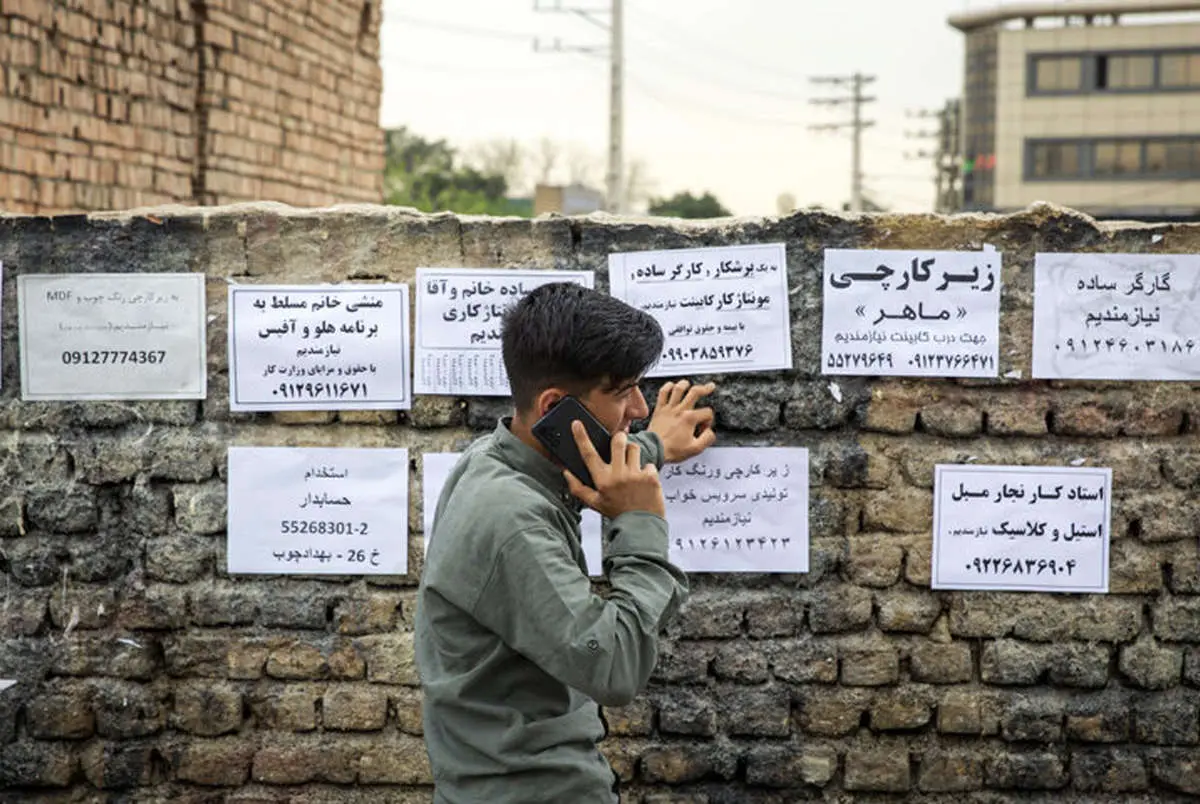 به زیرکارچی رنگ چوب و MDF
نیازمندیم
09127774367
منشی خانم مسلط به
برنامه هلو و آفیس
نیازمندیم
با حقوق و مزایای وزارت کار
۰۹۱۲۹۶۱۱۶۷۱
ساده خانم و آقا
نتاژکاری
به یک برشکار و کارگر ساده و
مونتاژکار کابینت نیازمندیم
با بیمه و حقوق توافقی
۰۹۹۰۳۸۵۹۳۷۶
زیرکارچی
« ماهر »
جهت درب کابینت نیازمندیم
۵۵۲۷۹۶۴۹ ۰۹۱۲۳۷۶۶۴۷۱
گارگر ساده
نیازمندیم
۰۹۱۲۴۶۰۳۱۸۶
استخدام
حسابدار
55268301-2
خ 26 - بهدادچوب
ز یر کارچی ورنگ کار
تولیدی سرویس خواب
نیازمندیم
۰۹۱۲۶۱۲۳۴۲۳
استاد کار نجار مبل
استیل و کلاسیک نیازمندیم.
۰۹۲۲۶۸۳۶۹۰۴